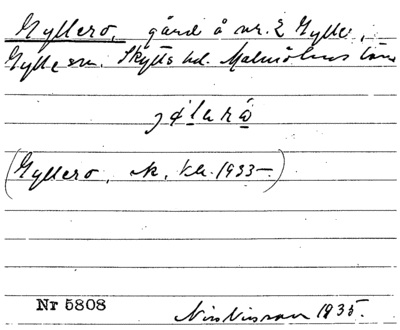 Gyllero, gård å nr. 2 Gylle,
Gylle sn. Skytts hd. Malmöhus län
(Gyllero, 1933)
Nr 5808 Nils Nilsson 1935.